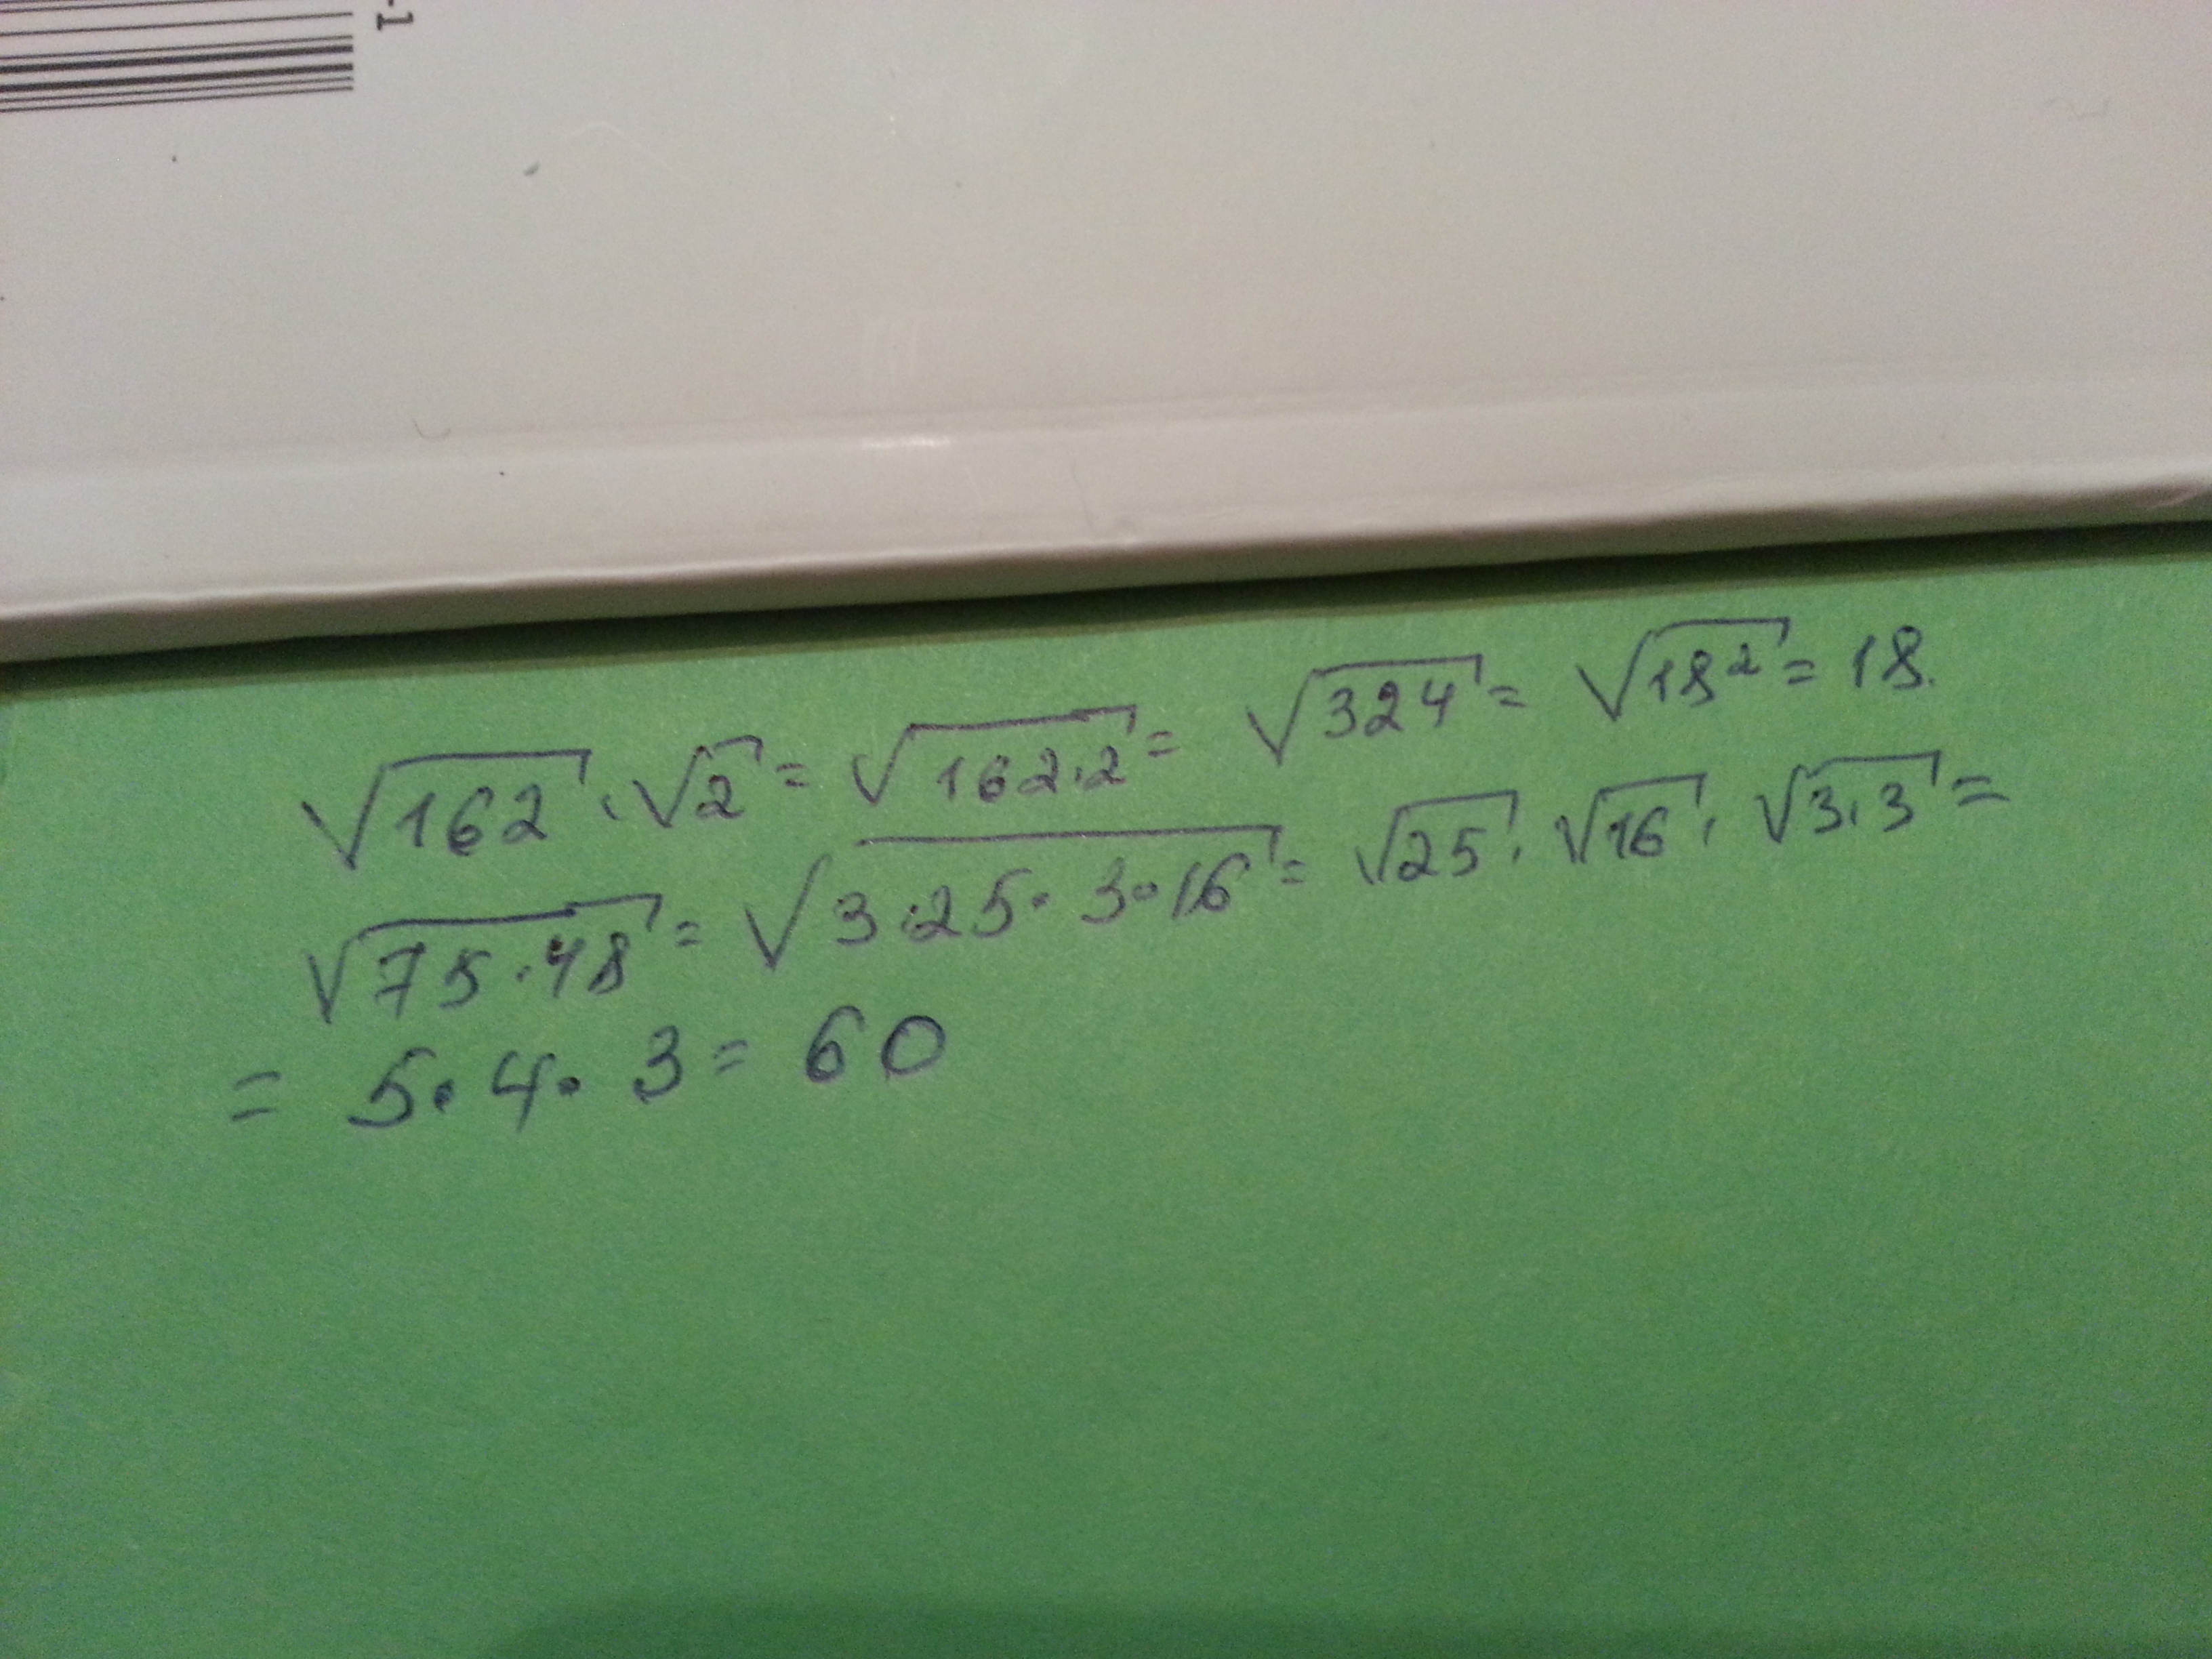 -1
√162 · √2 = √162·2 = √324 = √18² = 18.
√75·48 = √3·25·3·16 = √25 · √16 · √3·3 =
= 5 · 4 · 3 = 60